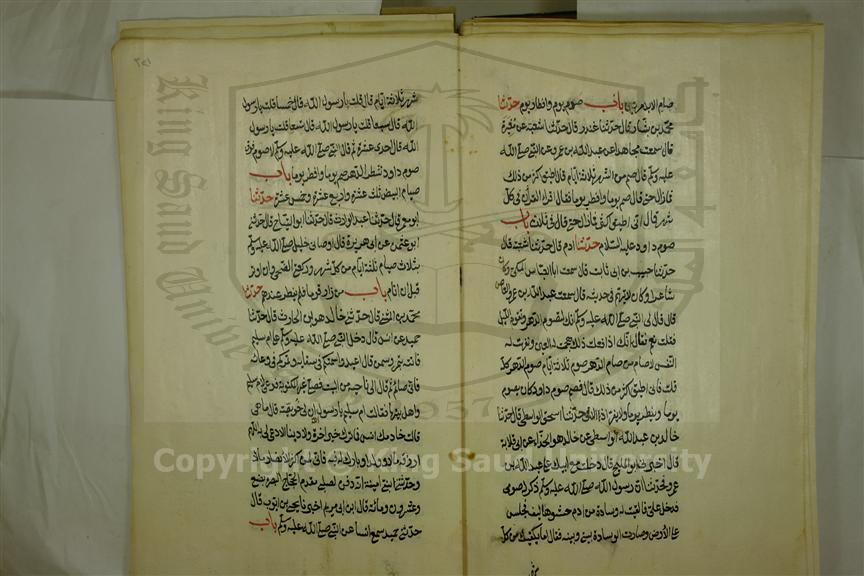 صام الابد مرتين باب صوم يوم وافطار يوم حدثنا
محمد بن بشار قال حدثنا غندر قال حدثنا شعبة عن مغيرة
قال سمعت مجاهدا عن عبد الله بن عمرو عن النبي صلى الله
عليه وسلم قال صم من الشهر ثلاثة ايام قال اطيق اكثر من ذلك
فما زال حتى قال صم يوما وافطر يوما فقال اقرا القران في كل
شهر قال اني اطيق اكثر فما زال حتى قال في ثلاث باب
صوم داود عليه السلام حدثنا ادم قال حدثنا شعبة قال
حدثنا حبيب بن ابي ثابت قال سمعت ابا العباس المكي وكان
شاعرا وكان لا يتهم في حديثه قال سمعت عبد الله بن عمرو
قال قال لي النبي صلى الله عليه وسلم انك لتصوم الدهر وتقوم الليل
فقلت نعم فقال انك اذا فعلت ذلك هجمت له العين ونفهت له
النفس لا صام من صام الدهر صوم ثلاثة ايام صوم الدهر كله
قلت فاني اطيق اكثر من ذلك قال فصم صوم داود كان يصوم
يوما ويفطر يوما ولا يفر اذا لاقى حدثنا اسحق الواسطي قال حدثنا
خالد بن عبد الله الواسطي عن خالد هو الحذاء عن ابي قلابة
قال اخبرني ابو المليح قال دخلت مع ابيك على عبد الله بن
عمرو فحدثنا ان رسول الله صلى الله عليه وسلم ذكر له صومي
فدخل علي فالقيت له وسادة من ادم حشوها ليف فجلس
على الارض وصارت الوسادة بيني وبينه فقال اما يكفيك من كل
شهر ثلاثة ايام قال قلت يا رسول الله قال خمسا قلت يا رسول
الله قال سبعا قلت يا رسول الله قال تسعا قلت يا رسول
الله قال احدى عشرة ثم قال النبي صلى الله عليه وسلم لا صوم فوق
صوم داود شطر الدهر صم يوما وافطر يوما باب
صيام البيض ثلث عشرة واربع عشرة وخمس عشرة حدثنا
ابو معمر قال حدثنا عبد الوارث قال حدثنا ابو التياح قال حدثني
ابو عثمن عن ابي هريرة قال اوصاني خليلي صلى الله عليه وسلم
بثلاث صيام ثلثة ايام من كل شهر وركعتي الضحى وان اوتر
قبل ان انام باب من زار قوما فلم يفطر عندهم حدثنا
محمد بن المثنى قال حدثني خالد هو بن الحارث قال حدثنا
حميد عن انس قال دخل النبي صلى الله عليه وسلم على ام سليم
فاتته بتمر وسمن قال اعيدوا سمنكم في سقائه وتمركم في وعائه
فاني صائم ثم قام الى ناحية من البيت فصلى غير المكتوبة فدعا لام سليم
واهل بيتها فقلت ام سليم يا رسول الله ان لي خويصة قال ما هي
قالت خادمك انس فما ترك خير اخرة ولا دنيا الا دعا لي به اللهم
ارزقه مالا وولدا وبارك له فاني لمن اكثر الانصار مالا
وحدثتني ابنتي امينة انه دفن لصلبي مقدم الحجاج البصرة بضع
وعشرون ومائة قال ابن ابي مريم اخبرنا يحيى بن ايوب قال
حدثني حميد سمع انسا عن النبي صلى الله عليه وسلم باب
Copyright © King Saud University
King Saud University
1957